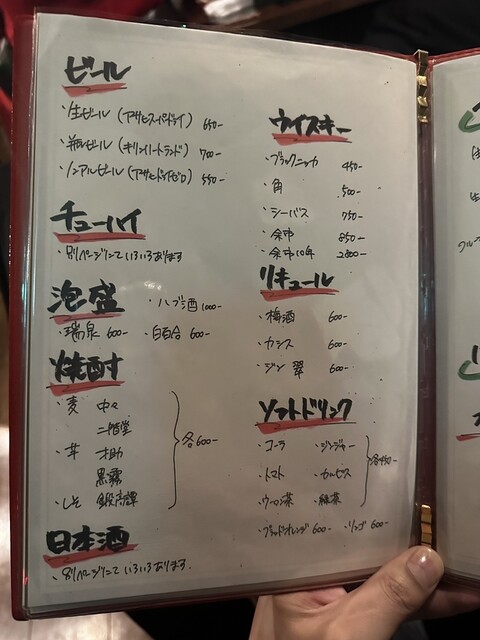 ビール
・生ビール（アサヒスーパードライ） 650-
・瓶ビール（キリンハートランド） 700-
・ノンアルビール（アサヒドライゼロ） 550-
チューハイ
・別ページにていろいろあります
泡盛
・ハブ酒 1000-
・瑞泉 600- ・白百合 600-
焼酎
・麦 中々
二階堂
・芋 才助
黒霧
・しそ 鍛高譚
各600-
日本酒
・別ページにていろいろあります.
ウイスキー
・ブラックニッカ 450-
・角 500-
・シーバス 750-
・余市 850-
・余市10年 2800-
リキュール
・梅酒 600-
・カシス 600-
・ジン 翠 600-
ソフトドリンク
・コーラ ・ジンジャー
・トマト ・カルピス
・ウーロン茶 ・緑茶
各450-
・ブラッドオレンジ 600- ・リンゴ 600-